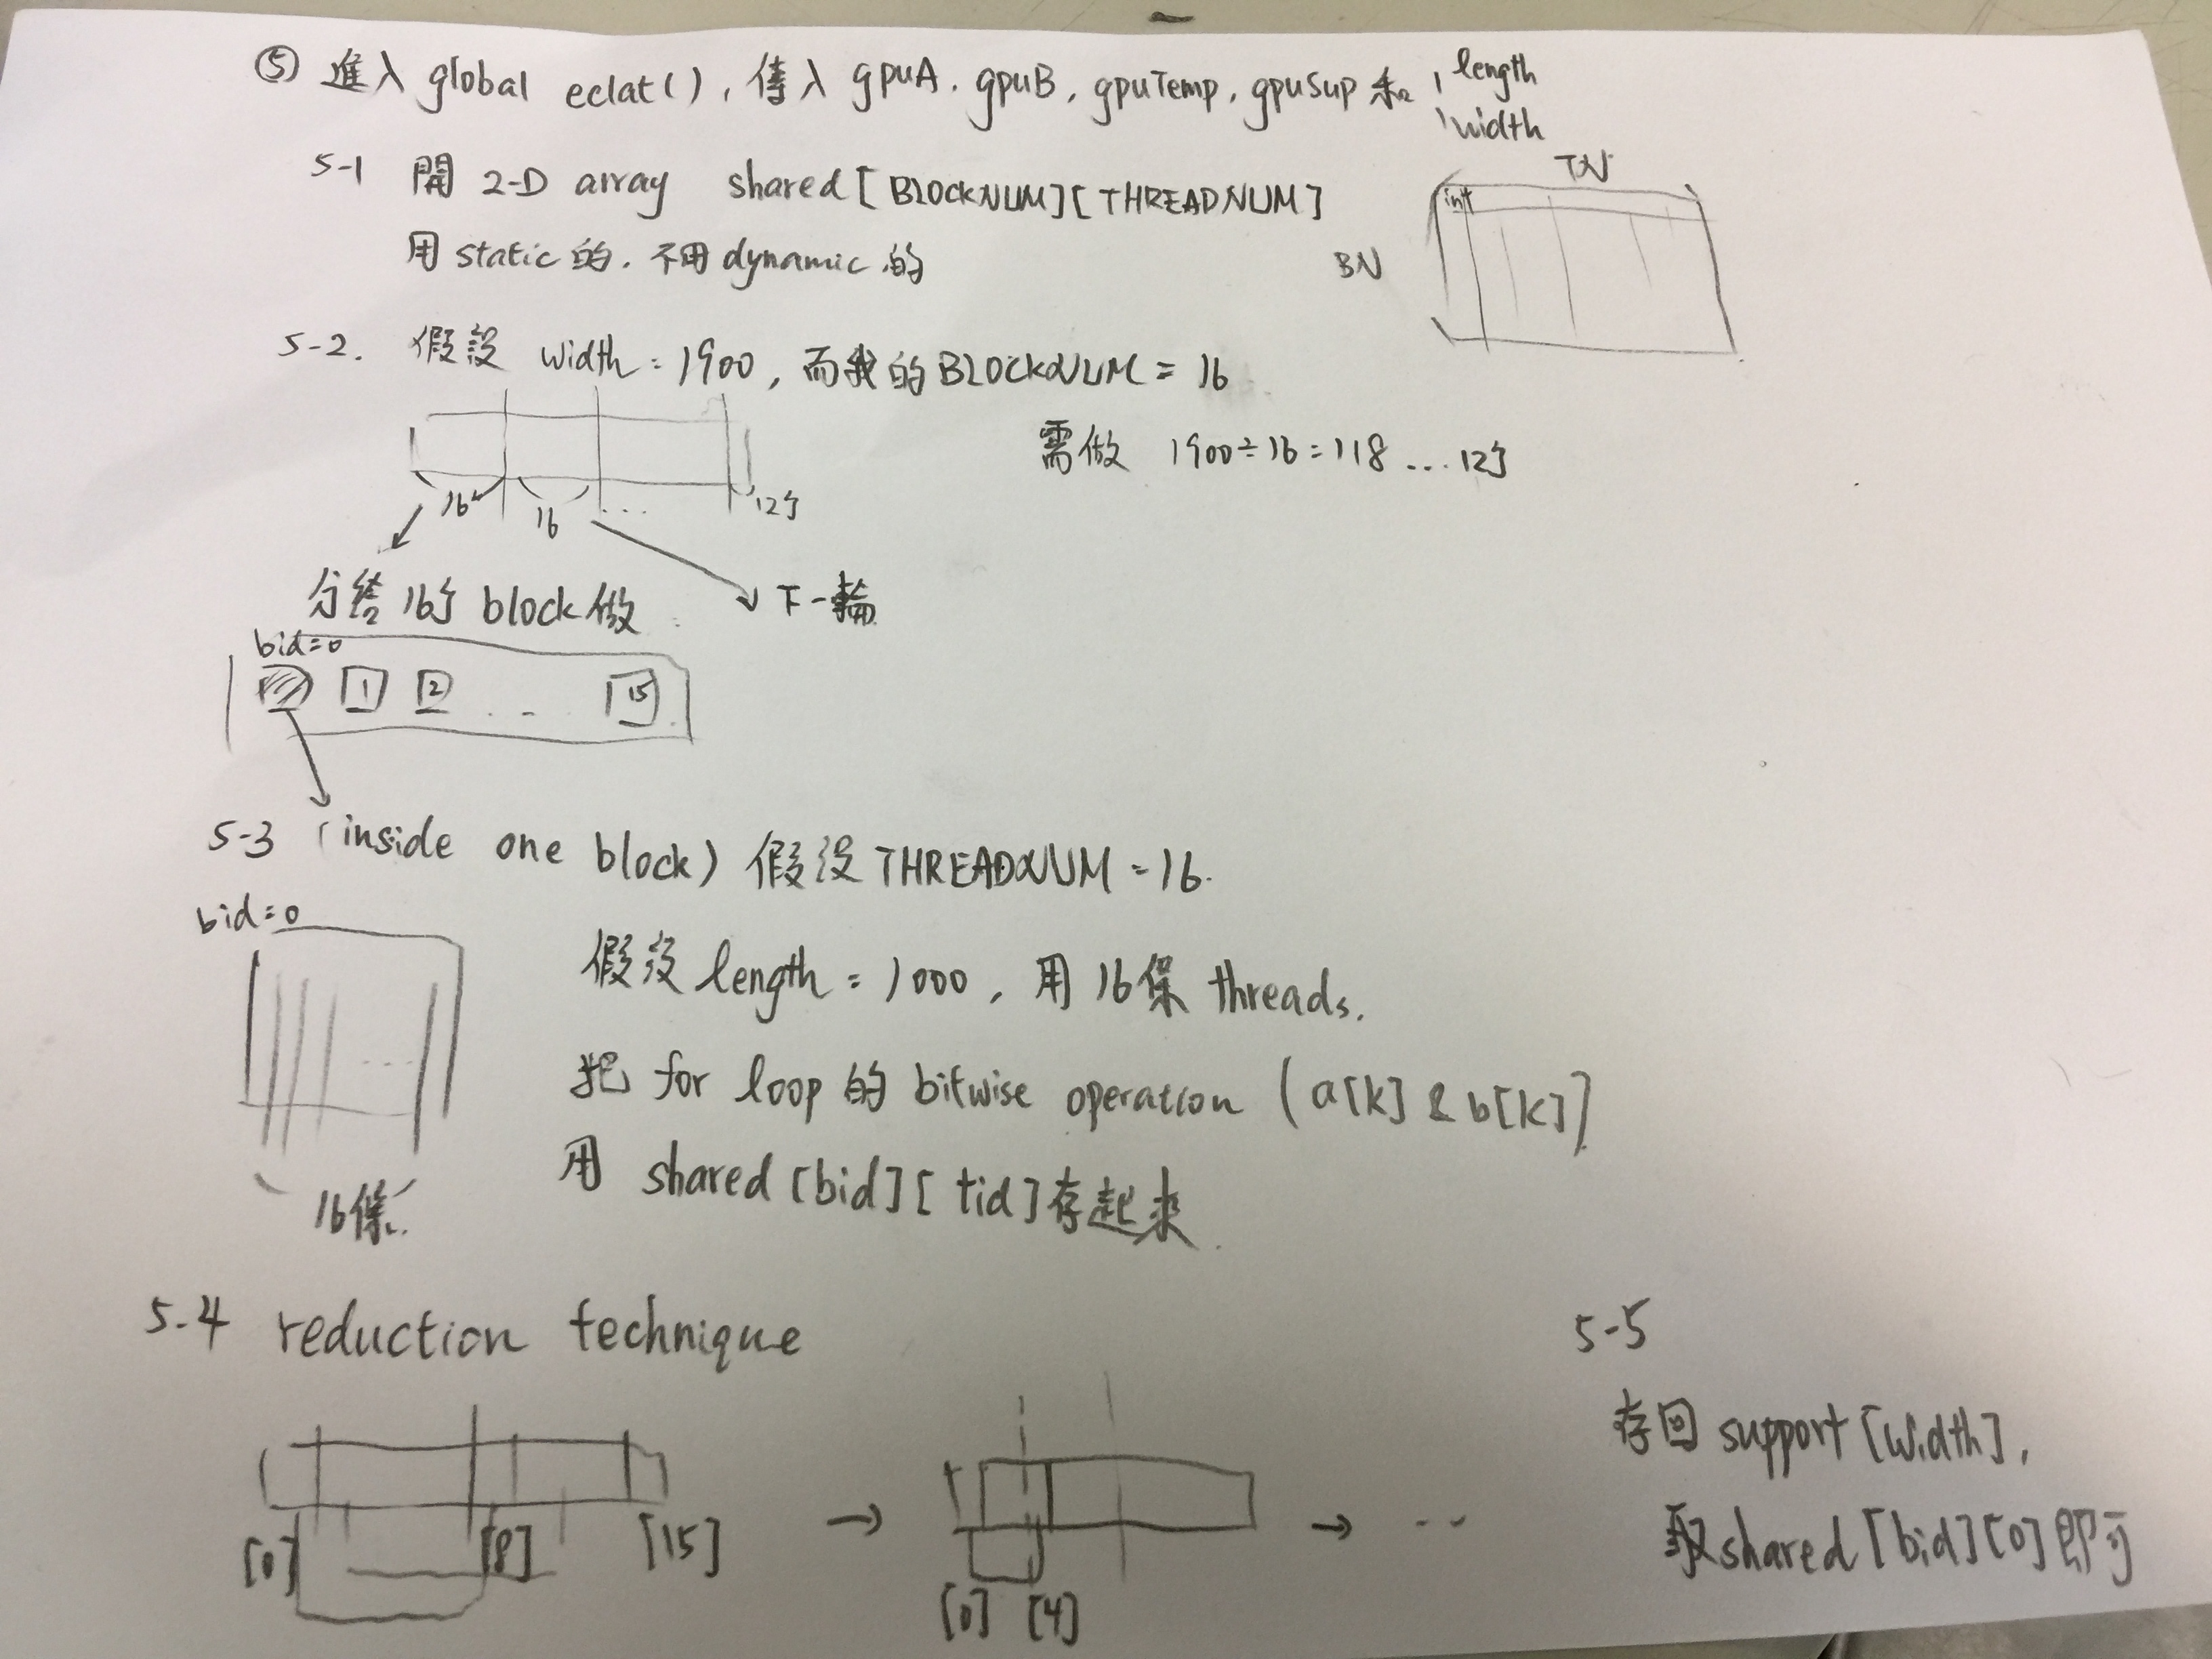 ⑤ 進入 global eclat(), 傳入 gpuA, gpuB, gpuTemp, gpuSup 和 length
width
5-1 開 2-D array shared[BLOCKNUM][THREADNUM]
TN
int
BN
用 static 的, 不用 dynamic 的
5-2. 假設 width = 1900, 而我的 BLOCKNUM = 16
需做 1900÷16=118 ... 12个
16个
16
...
12个
分給 16个 block 做
下一輪
bid=0
1 2 . . . 15
5-3 (inside one block) 假設 THREADNUM = 16.
bid=0
假設 length = 1000, 用 16條 threads.
把 for loop 的 bitwise operation (a[k] & b[k])
用 shared[bid][tid] 存起來.
...
16條
5-4 reduction technique
[0] [8] [15]
→
[0] [4]
→ ..
5-5
存回 support[width],
取 shared[bid][0] 即可